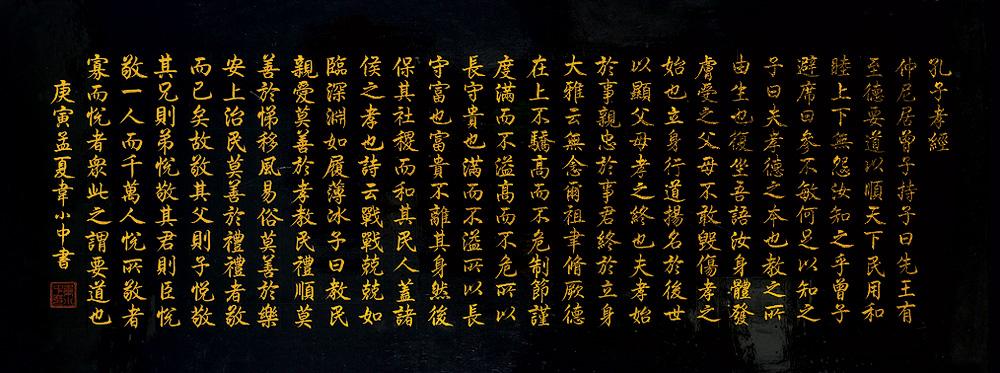 孔子孝經
仲尼居曾子持子曰先王有
至德要道以順天下民用和
睦上下無怨汝知之乎曾子
避席曰參不敏何足以知之
子曰夫孝德之本也教之所
由生也復坐吾語汝身體發
膚受之父母不敢毀傷孝之
始也立身行道揚名於後世
以顯父母孝之終也夫孝始
於事親忠於事君終於立身
大雅云無念爾祖聿脩厥德
在上不驕高而不危制節謹
度滿而不溢高而不危所以
長守貴也滿而不溢所以長
守富也富貴不離其身然後
保其社稷而和其民人蓋諸
侯之孝也詩云戰戰兢兢如
臨深淵如履薄冰子曰教民
親愛莫善於孝教民禮順莫
善於悌移風易俗莫善於樂
安上治民莫善於禮禮者敬
而已矣故敬其父則子悅敬
其兄則弟悅敬其君則臣悅
敬一人而千萬人悅所敬者
寡而悅者眾此之謂要道也
庚寅孟夏韋小中書